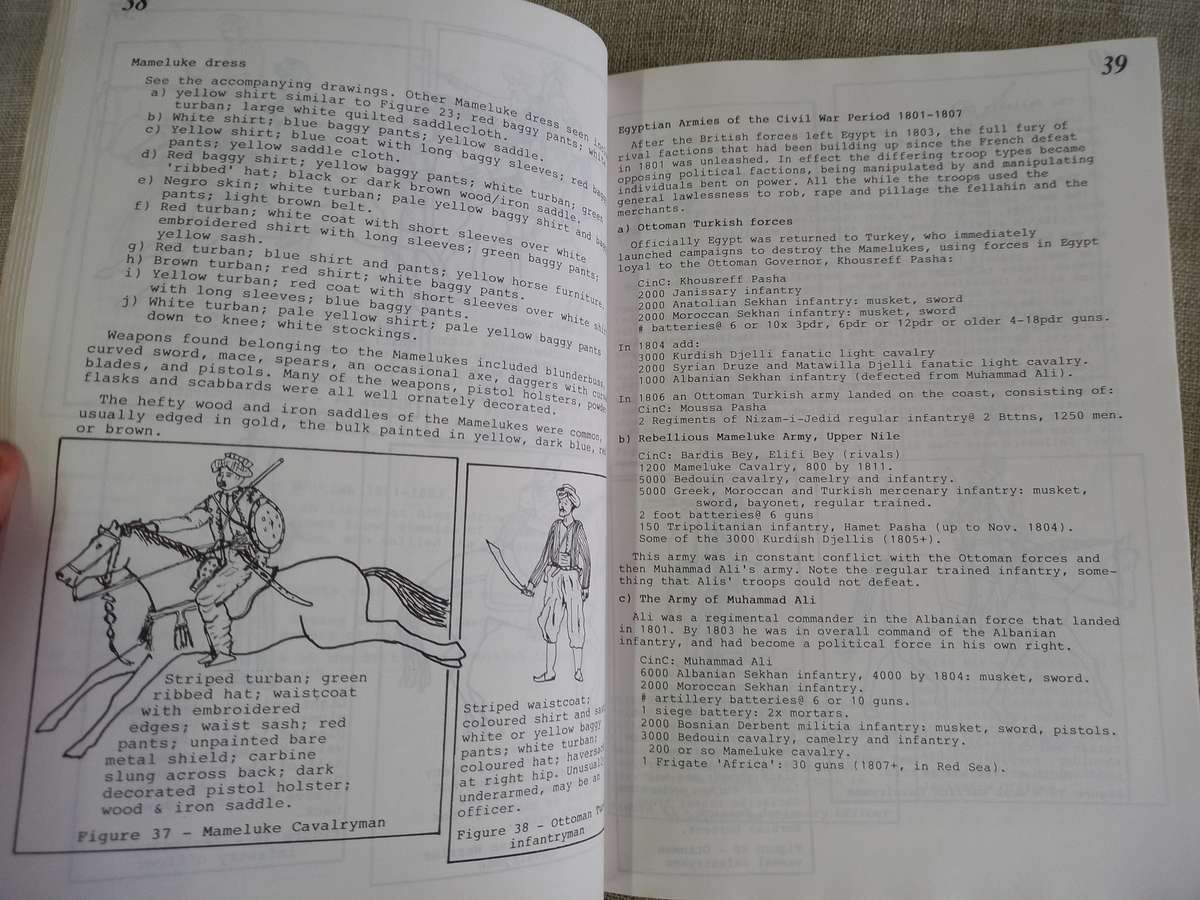 38
Mameluke dress
See the accompanying drawings. Other Mameluke dress seen
a) yellow shirt similar to Figure 23; red baggy pants; white
turban; large white quilted saddlecloth.
b) White shirt; blue baggy pants; yellow saddle.
c) Yellow shirt; blue coat with long baggy sleeves; red baggy
pants; yellow saddle cloth.
d) Red baggy shirt; yellow baggy pants; white turban; green
'ribbed' hat; black or dark brown wood/iron saddle.
e) Negro skin; white turban; pale yellow baggy shirt and baggy
pants; light brown belt.
f) Red turban; white coat with short sleeves over white
embroidered shirt with long sleeves; green baggy pants;
yellow sash.
g) Red turban; blue shirt and pants; yellow horse furniture.
h) Brown turban; red shirt; white baggy pants.
i) Yellow turban; red coat with short sleeves over white shirt
with long sleeves; blue baggy pants.
j) White turban; pale yellow shirt; pale yellow baggy pants
down to knee; white stockings.
Weapons found belonging to the Mamelukes included blunderbuss,
curved sword, mace, spears, an occasional axe, daggers with curved
blades, and pistols. Many of the weapons, pistol holsters, powder
flasks and scabbards were all well ornately decorated.
The hefty wood and iron saddles of the Mamelukes were common,
usually edged in gold, the bulk painted in yellow, dark blue, red
or brown.
Striped turban; green
ribbed hat; waistcoat
with embroidered
edges; waist sash; red
pants; unpainted bare
metal shield; carbine
slung across back; dark
decorated pistol holster;
wood & iron saddle.
Figure 37 - Mameluke Cavalryman
Striped waistcoat;
coloured shirt and sash;
white or yellow baggy
pants; white turban;
coloured hat; haversack
at right hip. Unusually
underarmed, may be an
officer.
Figure 38 - Ottoman
infantryman
39
Egyptian Armies of the Civil War Period 1801-1807
After the British forces left Egypt in 1803, the full fury of
rival factions that had been building up since the French defeat
in 1801 was unleashed. In effect the differing troop types became
opposing political factions, being manipulated by and manipulating
individuals bent on power. All the while the troops used the
general lawlessness to rob, rape and pillage the fellahin and the
merchants.
a) Ottoman Turkish forces
Officially Egypt was returned to Turkey, who immediately
launched campaigns to destroy the Mamelukes, using forces in Egypt
loyal to the Ottoman Governor, Khousreff Pasha:
CinC: Khousreff Pasha
2000 Janissary infantry
2000 Anatolian Sekhan infantry: musket, sword
2000 Moroccan Sekhan infantry: musket, sword
# batteries@ 6 or 10x 3pdr, 6pdr or 12pdr or older 4-18pdr guns.
In 1804 add:
3000 Kurdish Djelli fanatic light cavalry
2000 Syrian Druze and Matawilla Djelli fanatic light cavalry.
1000 Albanian Sekhan infantry (defected from Muhammad Ali).
In 1806 an Ottoman Turkish army landed on the coast, consisting of:
CinC: Moussa Pasha
2 Regiments of Nizam-i-Jedid regular infantry@ 2 Bttns, 1250 men.
b) Rebellious Mameluke Army, Upper Nile
CinC: Bardis Bey, Elifi Bey (rivals)
1200 Mameluke Cavalry, 800 by 1811.
5000 Bedouin cavalry, camelry and infantry.
5000 Greek, Moroccan and Turkish mercenary infantry: musket,
sword, bayonet, regular trained.
2 foot batteries@ 6 guns
150 Tripolitanian infantry, Hamet Pasha (up to Nov. 1804).
Some of the 3000 Kurdish Djellis (1805+).
This army was in constant conflict with the Ottoman forces and
then Muhammad Ali's army. Note the regular trained infantry, some-
thing that Alis' troops could not defeat.
c) The Army of Muhammad Ali
Ali was a regimental commander in the Albanian force that landed
in 1801. By 1803 he was in overall command of the Albanian
infantry, and had become a political force in his own right.
CinC: Muhammad Ali
6000 Albanian Sekhan infantry, 4000 by 1804: musket, sword.
2000 Moroccan Sekhan infantry.
# artillery batteries@ 6 or 10 guns.
1 siege battery: 2x mortars.
2000 Bosnian Derbent militia infantry: musket, sword, pistols.
3000 Bedouin cavalry, camelry and infantry.
200 or so Mameluke cavalry.
1 Frigate 'Africa': 30 guns (1807+, in Red Sea).